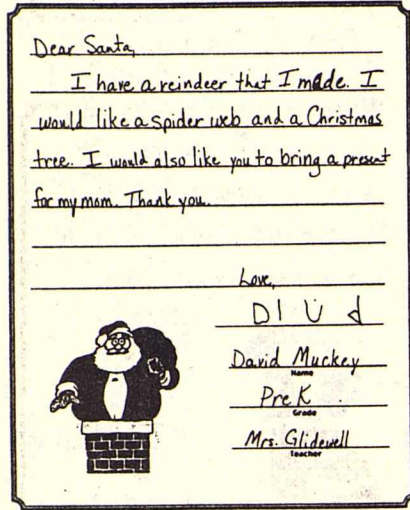 Dear Santa,
I have a reindeer that I made. I
would like a spider web and a Christmas
tree. I would also like you to bring a present
for my mom. Thank you.
Love,
D I U d
David Muckey
Name
Pre K
Grade
Mrs. Glidewell
Teacher